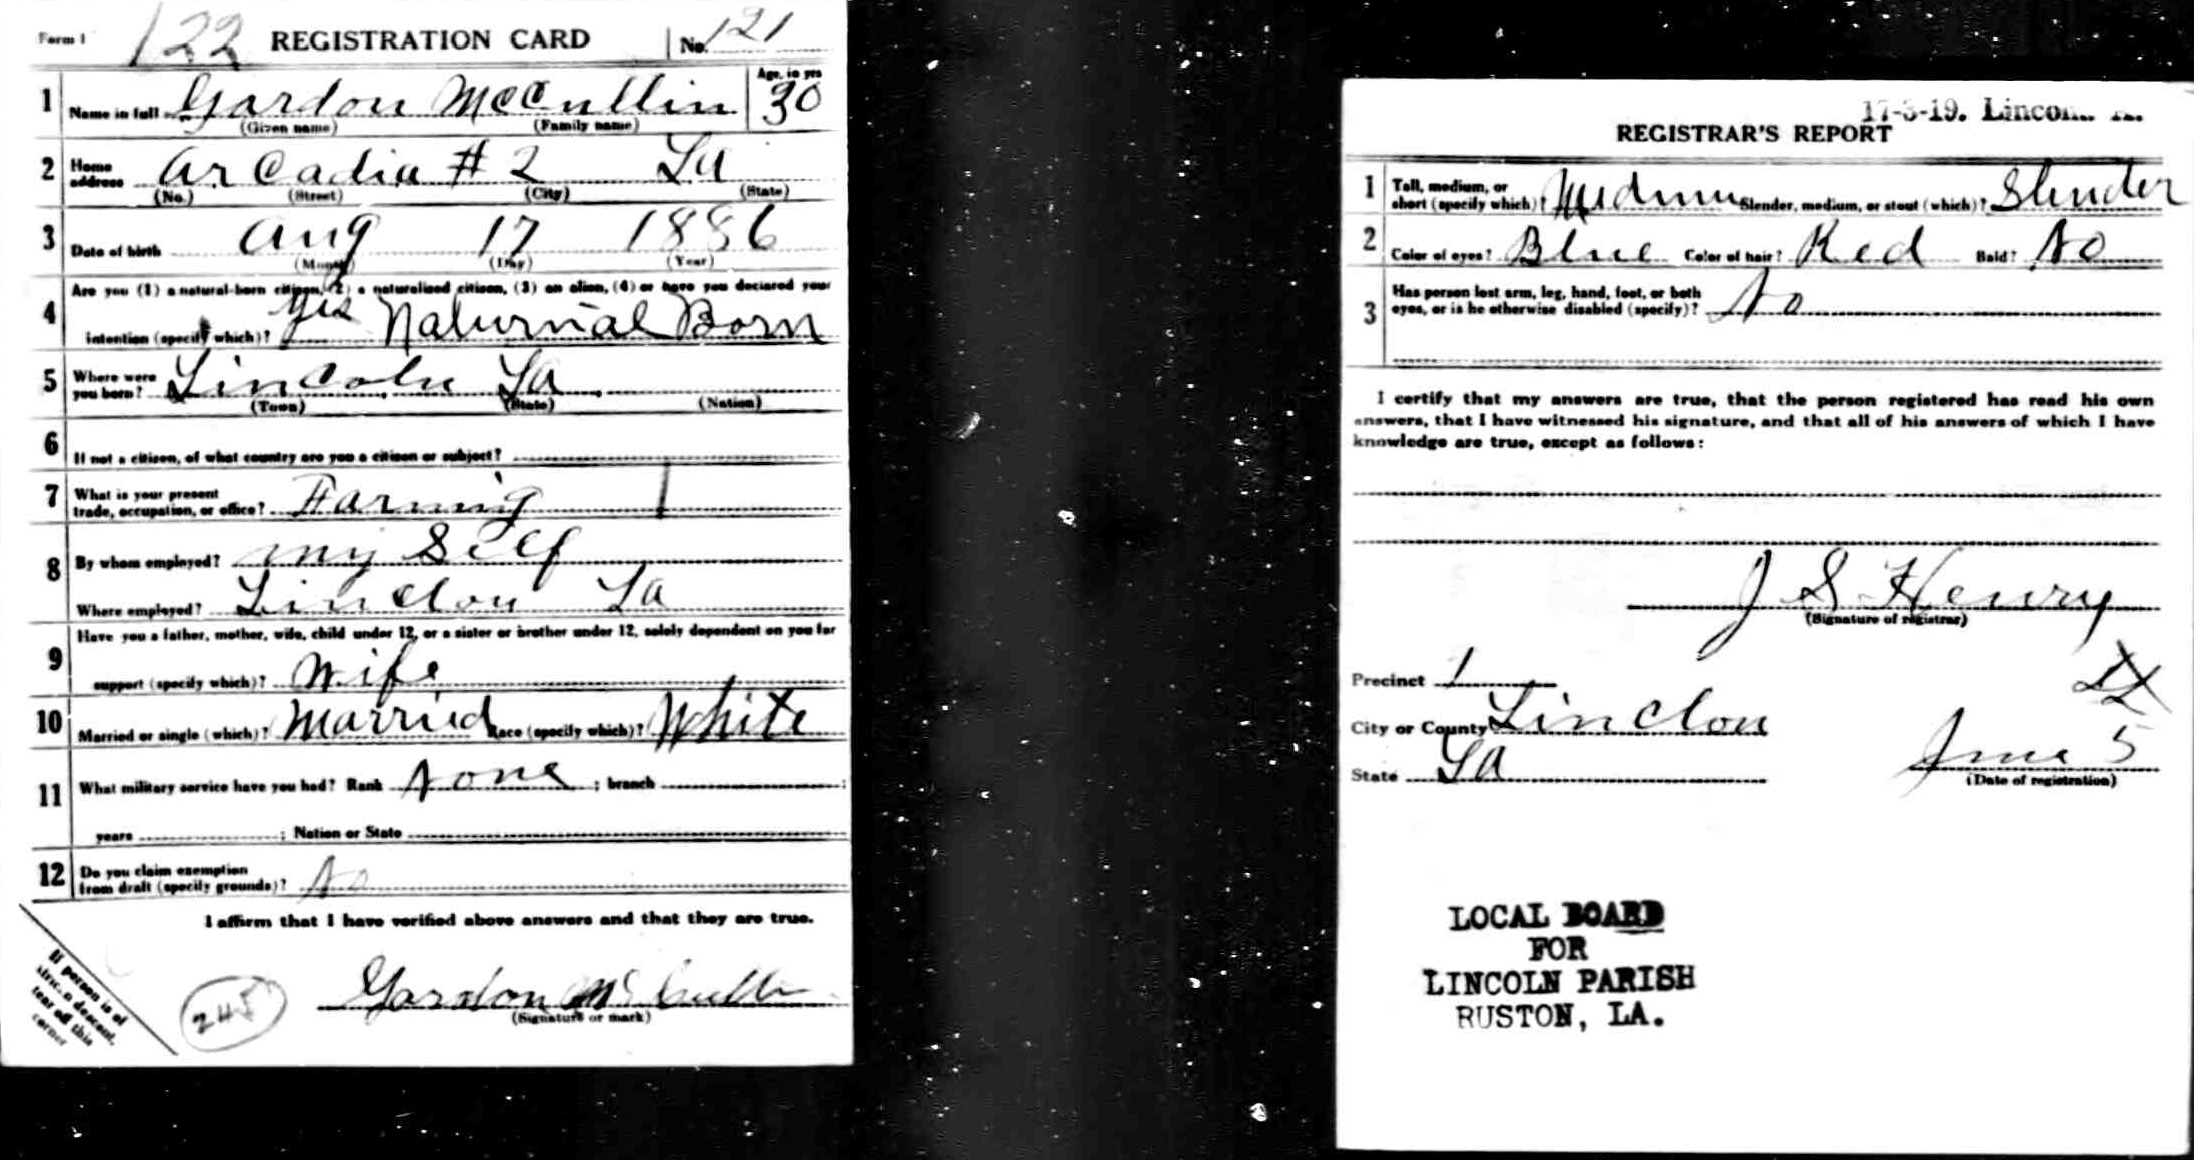 Form 1 122 REGISTRATION CARD No. 121
1 Name in full Gardon McCullin Age, in yrs 30
(Given name) (Family name)
2 Home address Arcadia # 2 La
(No.) (Street) (City) (State)
3 Date of birth Aug 17 1886
(Month) (Day) (Year)
4 Are you (1) a natural-born citizen, (2) a naturalized citizen, (3) an alien, (4) or have you declared your
intention (specify which)? Yes Naturnial Born
5 Where were you born? Lincoln La
(Town) (State) (Nation)
6 If not a citizen, of what country are you a citizen or subject?
7 What is your present trade, occupation, or office? Farming
8 By whom employed? my Self
Where employed? Linclon La
9 Have you a father, mother, wife, child under 12, or a sister or brother under 12, solely dependent on you for
support (specify which)? Wife
10 Married or single (which)? Married Race (specify which)? White
11 What military service have you had? Rank None ; branch ;
years ; Nation or State
12 Do you claim exemption from draft (specify grounds)? No
I affirm that I have verified above answers and that they are true.
Gardon McCullin
(Signature or mark)
If person is of
descent,
tear off this
corner
245
17-3-19. Lincoln
REGISTRAR'S REPORT
1 Tall, medium, or short (specify which)? Medium Slender, medium, or stout (which)? Slender
2 Color of eyes? Blue Color of hair? Red Bald? No
3 Has person lost arm, leg, hand, foot, or both
eyes, or is he otherwise disabled (specify)? No
I certify that my answers are true, that the person registered has read his own
answers, that I have witnessed his signature, and that all of his answers of which I have
knowledge are true, except as follows:
J S Henry
(Signature of registrar)
Precinct 1
City or County Linclon
State La
June 5
(Date of registration)
LOCAL BOARD
FOR
LINCOLN PARISH
RUSTON, LA.